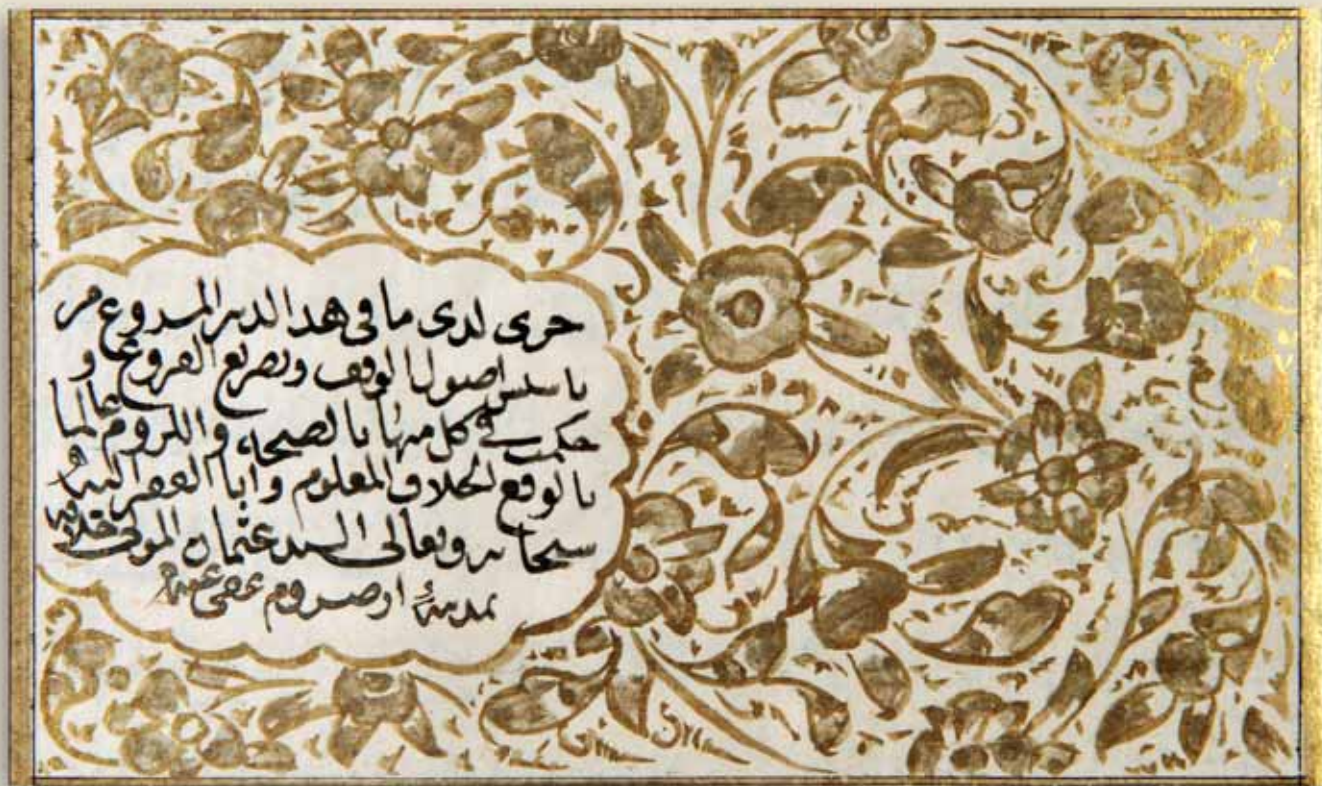 جرى لدى ما فى هذا الدير المبروع من
تاسيس اصول الوقف وتفريع الفروع و
حكمت فى كل منها بالصحة واللزوم عالما
بالوقع الخلاف المعلوم وانا الفقير اليه
سبحانه وتعالى السيد عثمان المولى خلافة
بمدينة ارضروم عفى عنه